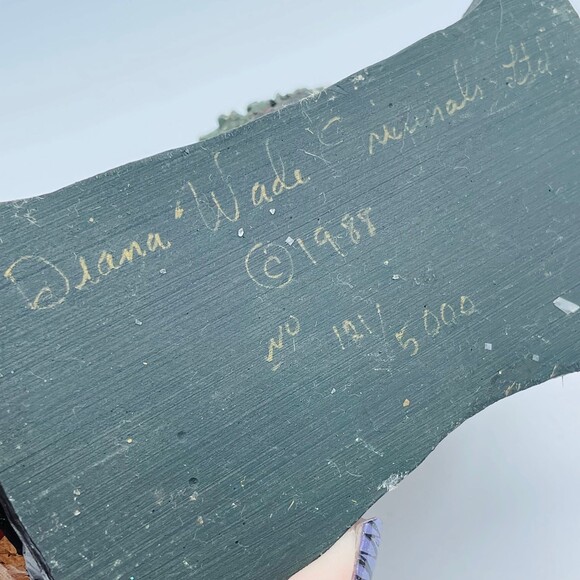 Diana Wade Ltd
© 1988
No 121/5000